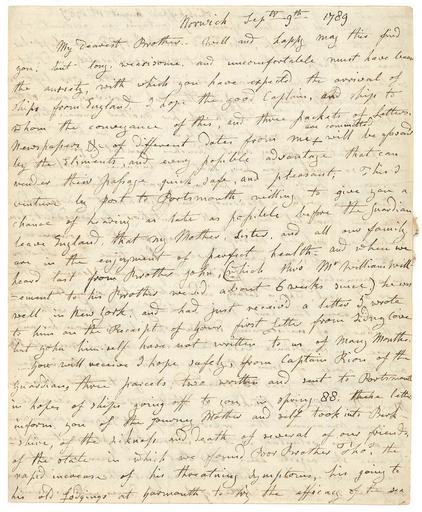 Norwich Septr 9th 1789
My Dearest Brother. Well and happy may this find
you, but long, wearisome, and uncomfortable must have been
the anxiety, with which you have expected the arrival of
ships from England. I hope the good Captain, and ships to
whom the conveyance of this, and three packets of Letters,
are committed
Newspapers &c of different Dates from me, will be
by the Eliments, and every possible advantage that can
render their passage quick, safe, and pleasant. This I
venture by post to Portsmouth, willing to give you a
chance of hearing as late as possible before the Guardian
leaves England, that my Mother, Sister, and all our family
are in the enjoyment of perfect health. and when we
heard last from Brother John, (which two Mr William
to his Brother recd about 6 weeks since) he was
well in New York, and had just received a letter I wrote
to him on the Receipt of yours, first Letter from Sidney Cove
but John himself have not written to us of many Months.
You will receive I hope safely, from Captain Riou of the
Guardian, three parcels, two written and sent to Portsmouth
in hopes of ships going off to you in spring 88. these Letters
inform you of the Journey Mother and self took into Berk
=shire, of the sickness and death of several of our friends,
of the state in which we found Poor Brother Thos, the
rapid increase of his threatning symptoms, his going to
his old Lodgings at Yarmouth to try the efficacy of the sea